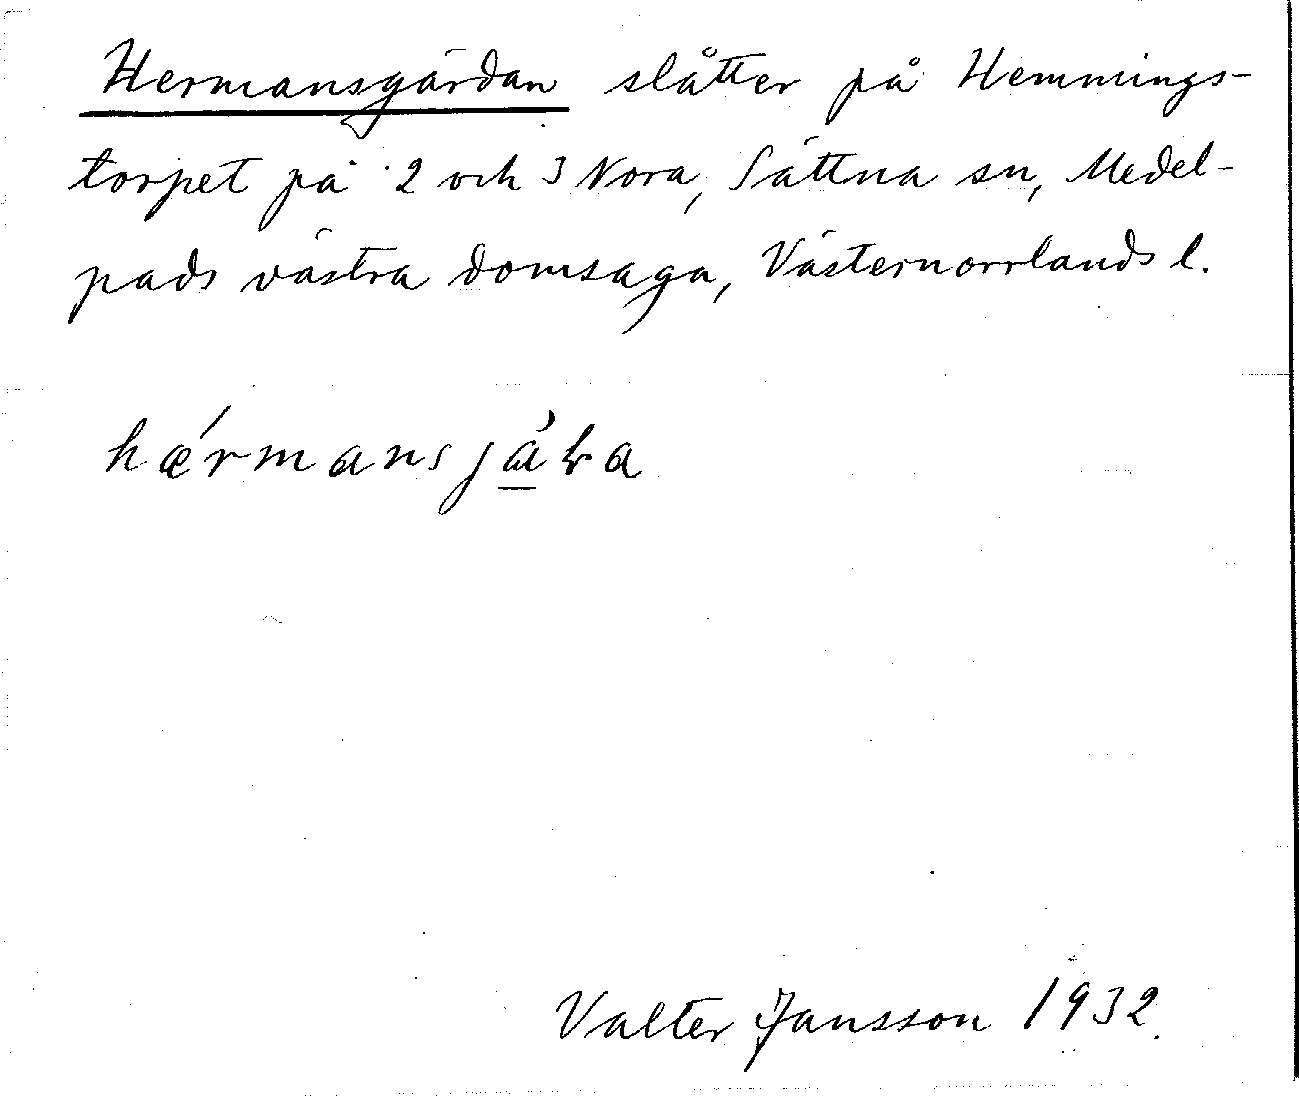 Hermansgärdan slåtter på Hemmings-
torpet på 2 och 3 Nora, Sättna sn, Medel-
pads västra domsaga, Västernorrlands l.
Valter Jansson 1932.